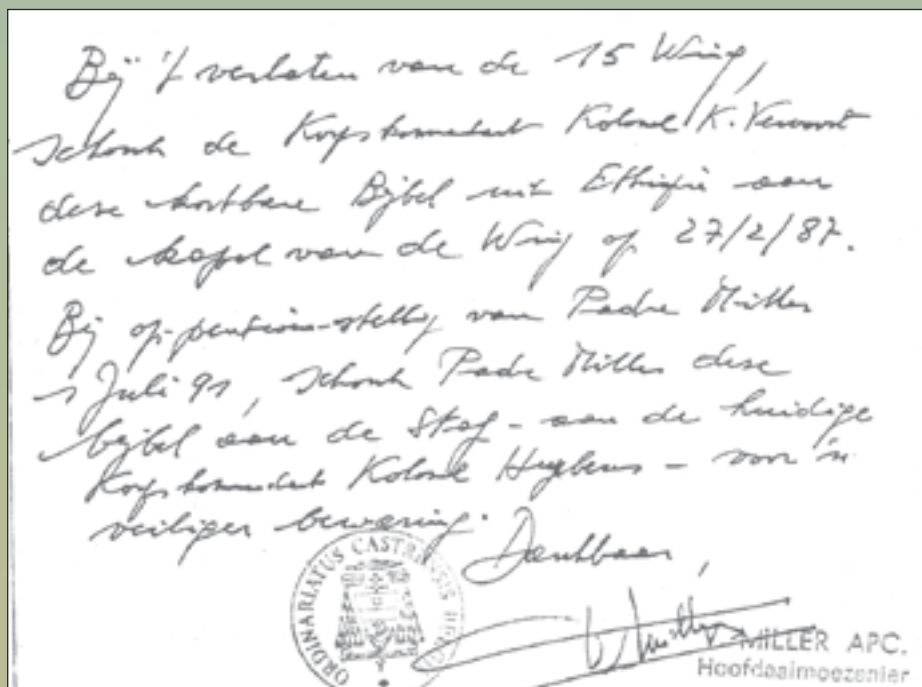 Bij 't verlaten van de 15 Wing,
schonk de Korpskommandant Kolonel K. Vervoort
deze kostbare Bijbel uit Ethiopië aan
de kapel van de Wing op 27/2/87.
Bij op-pensioen-stelling van Padre Miller
1 Juli 91, schonk Padre Miller deze
bijbel aan de Staf - aan de huidige
Korpskommandant Kolonel - voor 'n
veiliger bewaring.
Dankbaar,
ORDINARIATUS CASTRENSIS
MILLER APC.
Hoofdaalmoezenier